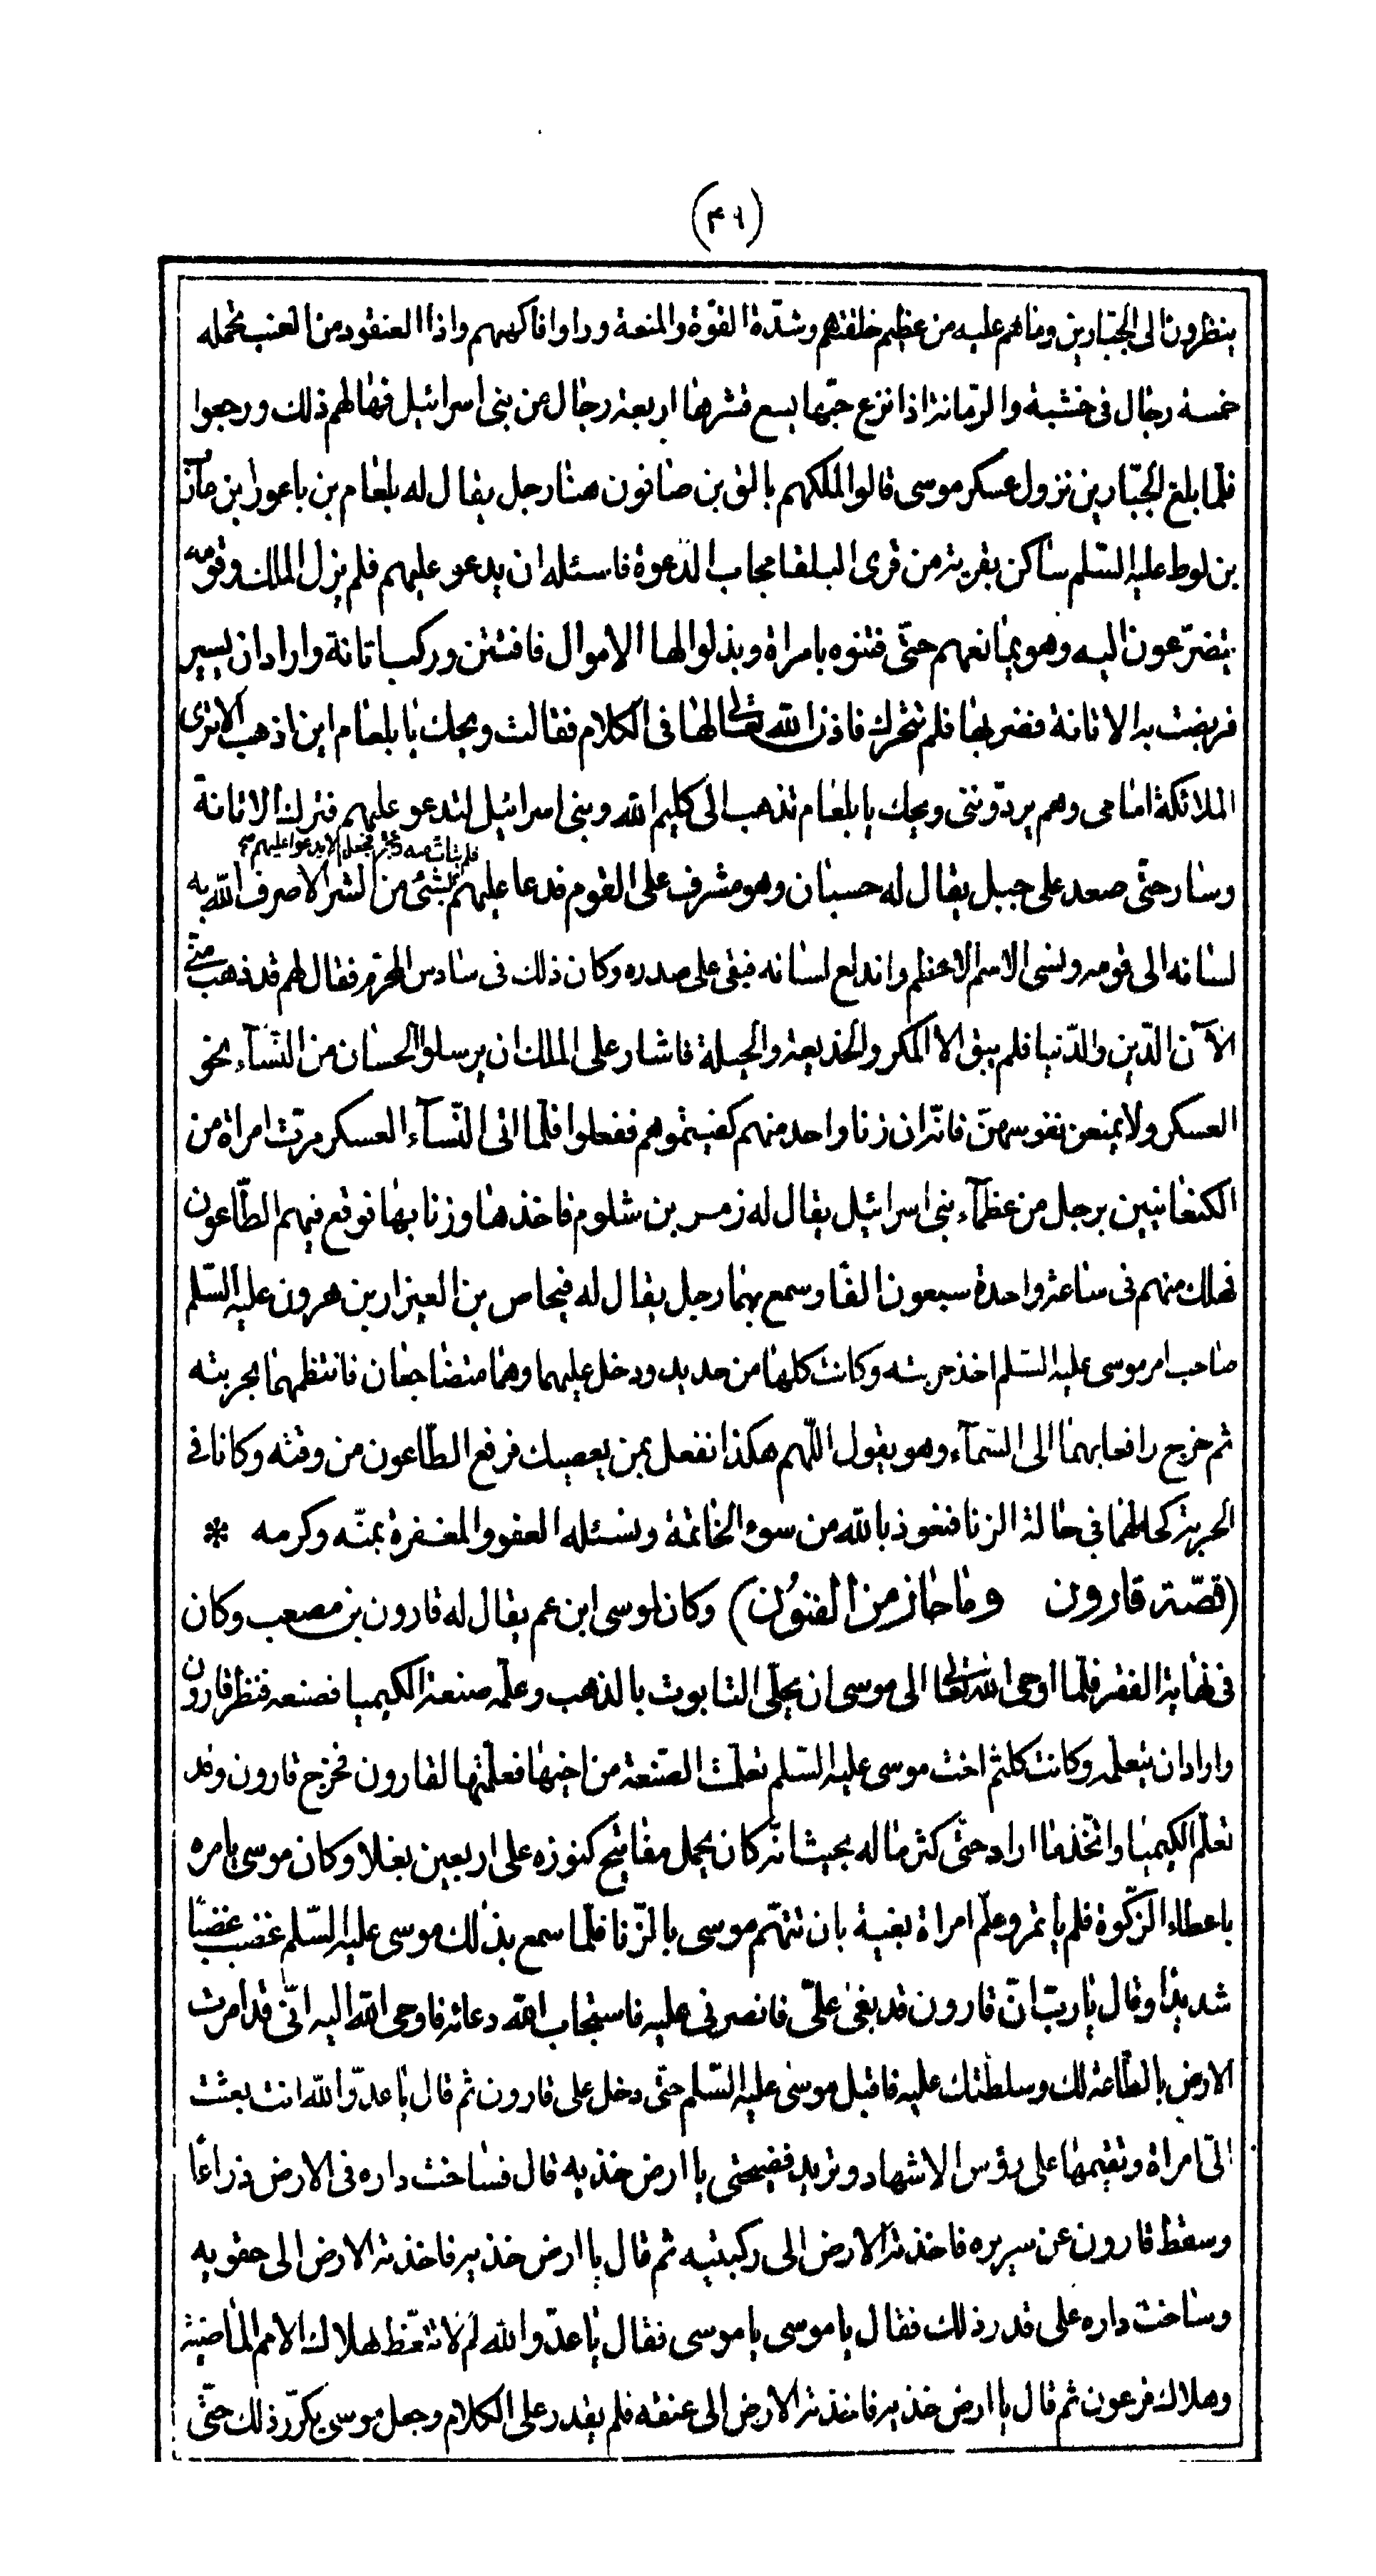 (٤٩)
ينظرون الى الجبّارين وما هم عليه من عظيم خلقتهم وشدّة القوّة والمنعة وراوا فاكهتهم واذا العنقود من العنب تحمله
خمسة رجال فى خشبة والرّمانة اذا نزع حبّها يسع قشرها اربعة رجال من بنى اسرائيل فهالهم ذلك ورجعوا
فلمّا بلغ الجبّارين نزول عسكر موسى قالوا لملكهم بالق بن صانون هنا رجل يقال له بلعام بن باعورا بن مآز
بن لوط عليه السّلم ساكن بقرية من قرى البلقا مجاب الدّعوة فاسئله ان يدعو عليهم فلم يزل الملك وقومه
يتضرّعون اليه وهو يمانعهم حتّى فتنوه بامراة وبذلوا لها الاموال فافتتن وركب اتانة واراد ان يسير
فربضت به الاتانة فضربها فلم تتحرك فاذن الله تعالى لها فى الكلام فقالت ويحك يا بلعام اين اذهب الا ترى
الملائكة امامى وهم يردّوننى ويحك يا بلعام تذهب الى كليم الله وبنى اسرائيل لتدعو عليهم فترك الاتانة
وسار حتّى صعد على جبل يقال له حسبان وهو مشرف على القوم فدعا عليهم بشئ من الشر الا صرف الله به
لسانه الى قومه ونسى الاسم الاعظم واندلع لسانه فبقى على صدره وكان ذلك فى سادس المحرّم فقال لهم قد ذهب منّى
الآن الدّين والدّنيا فلم يبق الا المكر والخديعة والحيلة فاشار على الملك ان يرسلوا الحسان من النّسآء نحو
العسكر ولا يمنعن نفوسهنّ فانّه ان زنا واحد منهم كفيتموهم ففعلوا فلمّا اتى النّسآء العسكر مرّت امراة من
الكنعانيين برجل من عظمآء بنى اسرائيل يقال له زمر بن شلوم فاخذها وزنا بها فوقع فيهم الطّاعون
فهلك منهم فى ساعة واحدة سبعون الفا وسمع بهما رجل يقال له فنحاص بن العيزار بن هرون عليه السّلم
صاحب امر موسى عليه السّلم اخذ حربته وكانت كلها من حديد ودخل عليهما وهما متضاجعان فانتظمهما بحربته
ثم خرج رافعا بهما الى السّمآء وهو يقول اللّهم هكذا نفعل بمن يعصيك فرفع الطّاعون من وقته وكانا فى
الحربة كحالهما فى حالة الزنا فنعوذ بالله من سوء الخاتمة ونسئله العفو والمغفرة بمنّه وكرمه *
(قصّة قارون وما حاز من الفنون) وكان لموسى ابن عم يقال له قارون بن مصعب وكان
فى نهاية الفقر فلمّا اوحى الله تعالى الى موسى ان يحلّى التابوت بالذهب وعلّمه صنعة الكيميا فصنعه فنظر قارون
واراد ان يتعلّمه وكانت كلثم اخت موسى عليه السّلم تعلّمت الصّنعة من اخيها فعلّمتها لقارون فخرج قارون وقد
تعلّم الكيميا واتّخذ ما اراد حتّى كثر ماله بحيث انّه كان يحمل مفاتيح كنوزه على اربعين بغلا وكان موسى يامره
باعطاء الزّكوة فلم ياتمر وعلّم امراة بغية بان تتهّم موسى بالزّنا فلمّا سمع بذلك موسى عليه السّلم غضب غضبًا
شديدًا وقال يا ربّ انّ قارون قد بغى علىّ فانصرنى عليه فاستجاب الله دعائه فاوحى الله اليه انّى قد امرت
الارض بالطّاعة لك وسلطتك عليه فاقبل موسى عليه السّلم حتّى دخل على قارون ثم قال يا عدّو الله انت بعثت
الىّ امراة وتقيمها على رؤس الاشهاد وتريد فضيحتى يا ارض خذيه قال فساخت داره فى الارض ذراعًا
وسقط قارون عن سريره فاخذته الارض الى ركبتيه ثم قال يا ارض خذيه فاخذته الارض الى حقويه
وساخت داره على قدر ذلك فقال يا موسى يا موسى فقال يا عدّو الله لم لا تتعّظ بهلاك الامم الماضية
وهلاك فرعون ثم قال يا ارض خذيه فاخذته الارض الى عنقه فلم يقدر على الكلام وجعل موسى يكرّر ذلك حتّى